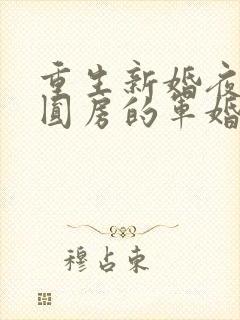 重生新婚夜
圆房的军婚
穆占东